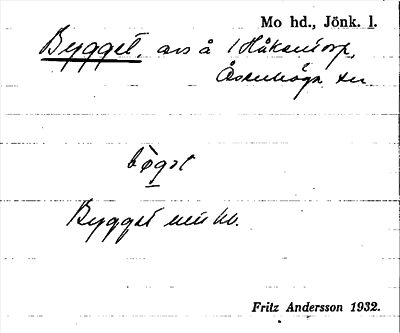 Mo hd., Jönk. l.
Bygget, avs å 1 Håkentorp,
Åsenhöga sn
bøgət
Bygget uu kl.
Fritz Andersson 1932.